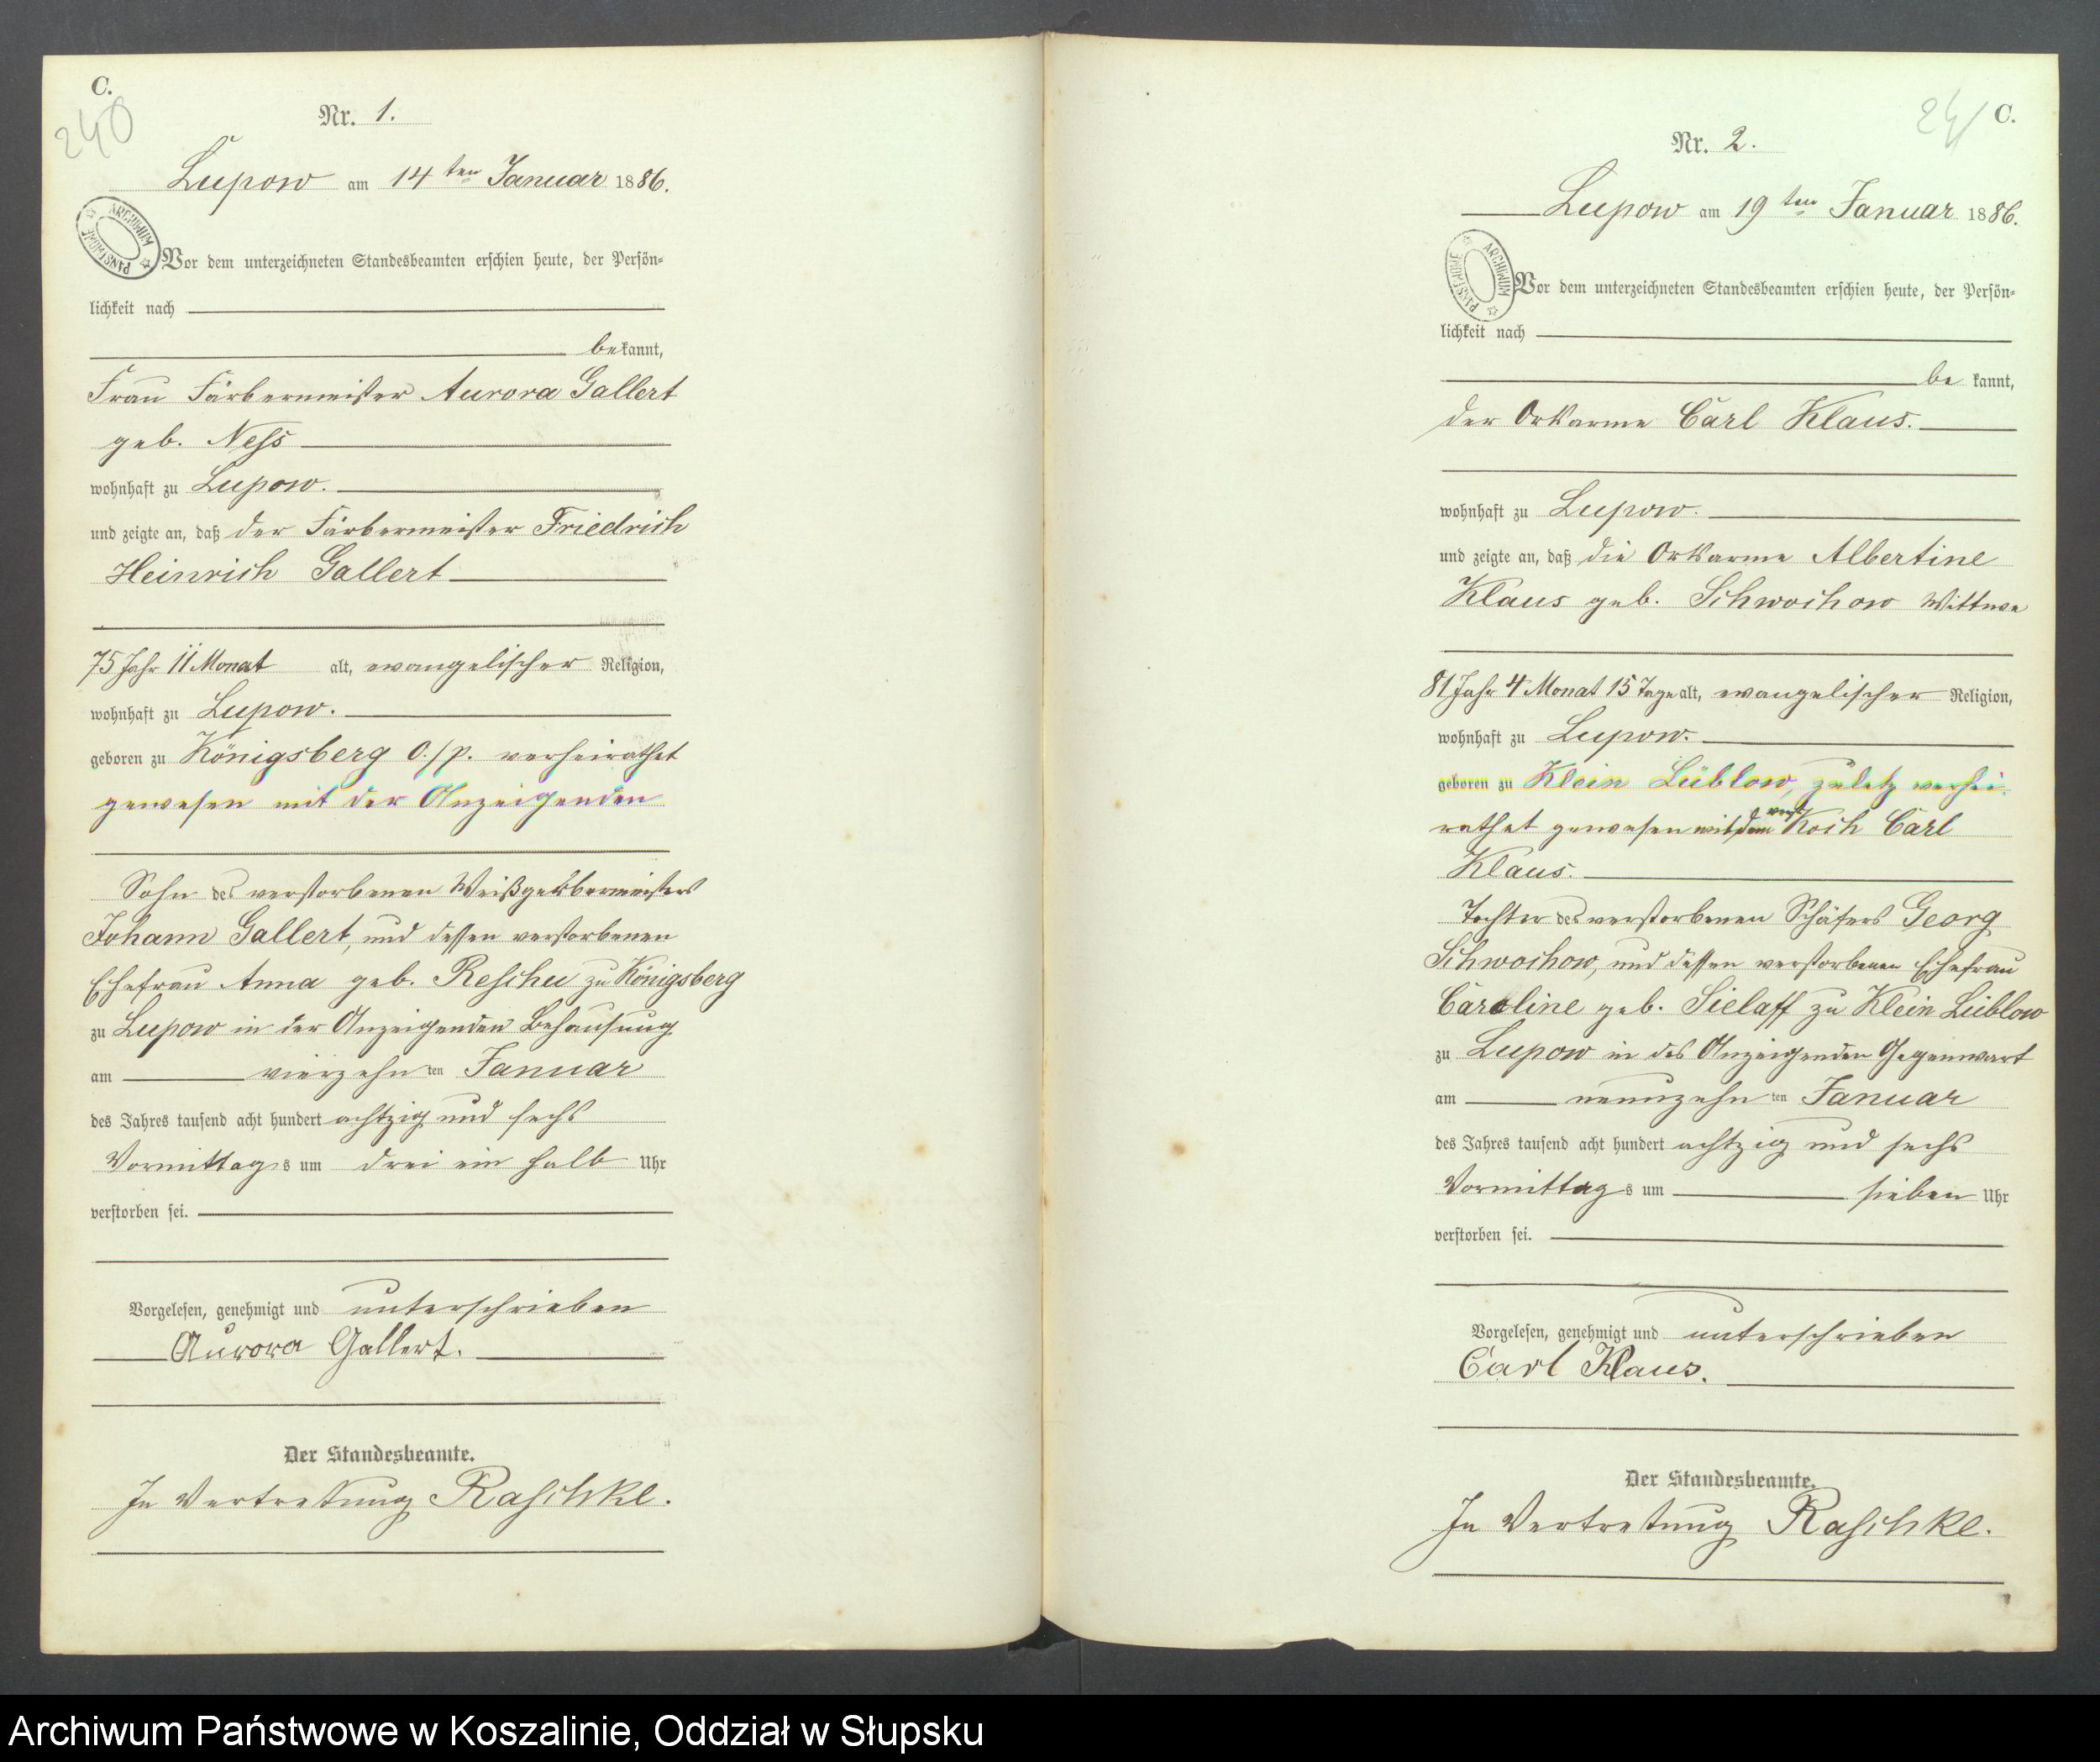 C.
240
Nr. 1.
Lupow am 14ten Januar 1886.
ARCHIWUM PAŃSTWOWE
Vor dem unterzeichneten Standesbeamten erschien heute, der Persön-
lichkeit nach
bekannt,
Frau Färbermeister Aurora Gallert
geb. Ness
wohnhaft zu Lupow.
und zeigte an, daß der Färbermeister Friedrich
Heinrich Gallert
75 Jahr 11 Monat alt, evangelischer Religion,
wohnhaft zu Lupow.
geboren zu Königsberg O./p. verheirathet
gewesen mit der Anzeigenden
Sohn des verstorbenen Weißgerbermeisters
Johann Gallert, und dessen verstorbenen
Ehefrau Anna geb. zu Königsberg
zu Lupow in der Anzeigenden Behausung
am vierzehnten Januar
des Jahres tausend acht hundert achtzig und sechs
Vormittags um drei ein halb Uhr
verstorben sei.
Vorgelesen, genehmigt und unterschrieben
Aurora Gallert.
Der Standesbeamte.
In Vertretung Raschke.
241 C.
Nr. 2.
Lupow am 19ten Januar 1886.
ARCHIWUM PAŃSTWOWE
Vor dem unterzeichneten Standesbeamten erschien heute, der Persön-
lichkeit nach
be kannt,
der Ortsarme Carl Klaus.
wohnhaft zu Lupow.
und zeigte an, daß die Ortsarme Albertine
Klaus geb. Schwochow Wittwe
81 Jahr 4 Monat 15 Tage alt, evangelischer Religion,
wohnhaft zu Lupow.
geboren zu Klein Lüblow, zuletz verhei-
rathet gewesen mit dem verst Koch Carl
Klaus.
Tochter des verstorbenen Schäfers Georg
Schwochow, und dessen verstorbenen Ehefrau
Caroline geb. Sielaff zu Klein Lüblow
zu Lupow in des Anzeigenden Gegenwart
am neunzehnten Januar
des Jahres tausend acht hundert achtzig und sechs
Vormittags um sieben Uhr
verstorben sei.
Vorgelesen, genehmigt und unterschrieben
Carl Klaus.
Der Standesbeamte.
In Vertretung Raschke.
Archiwum Państwowe w Koszalinie, Oddział w Słupsku